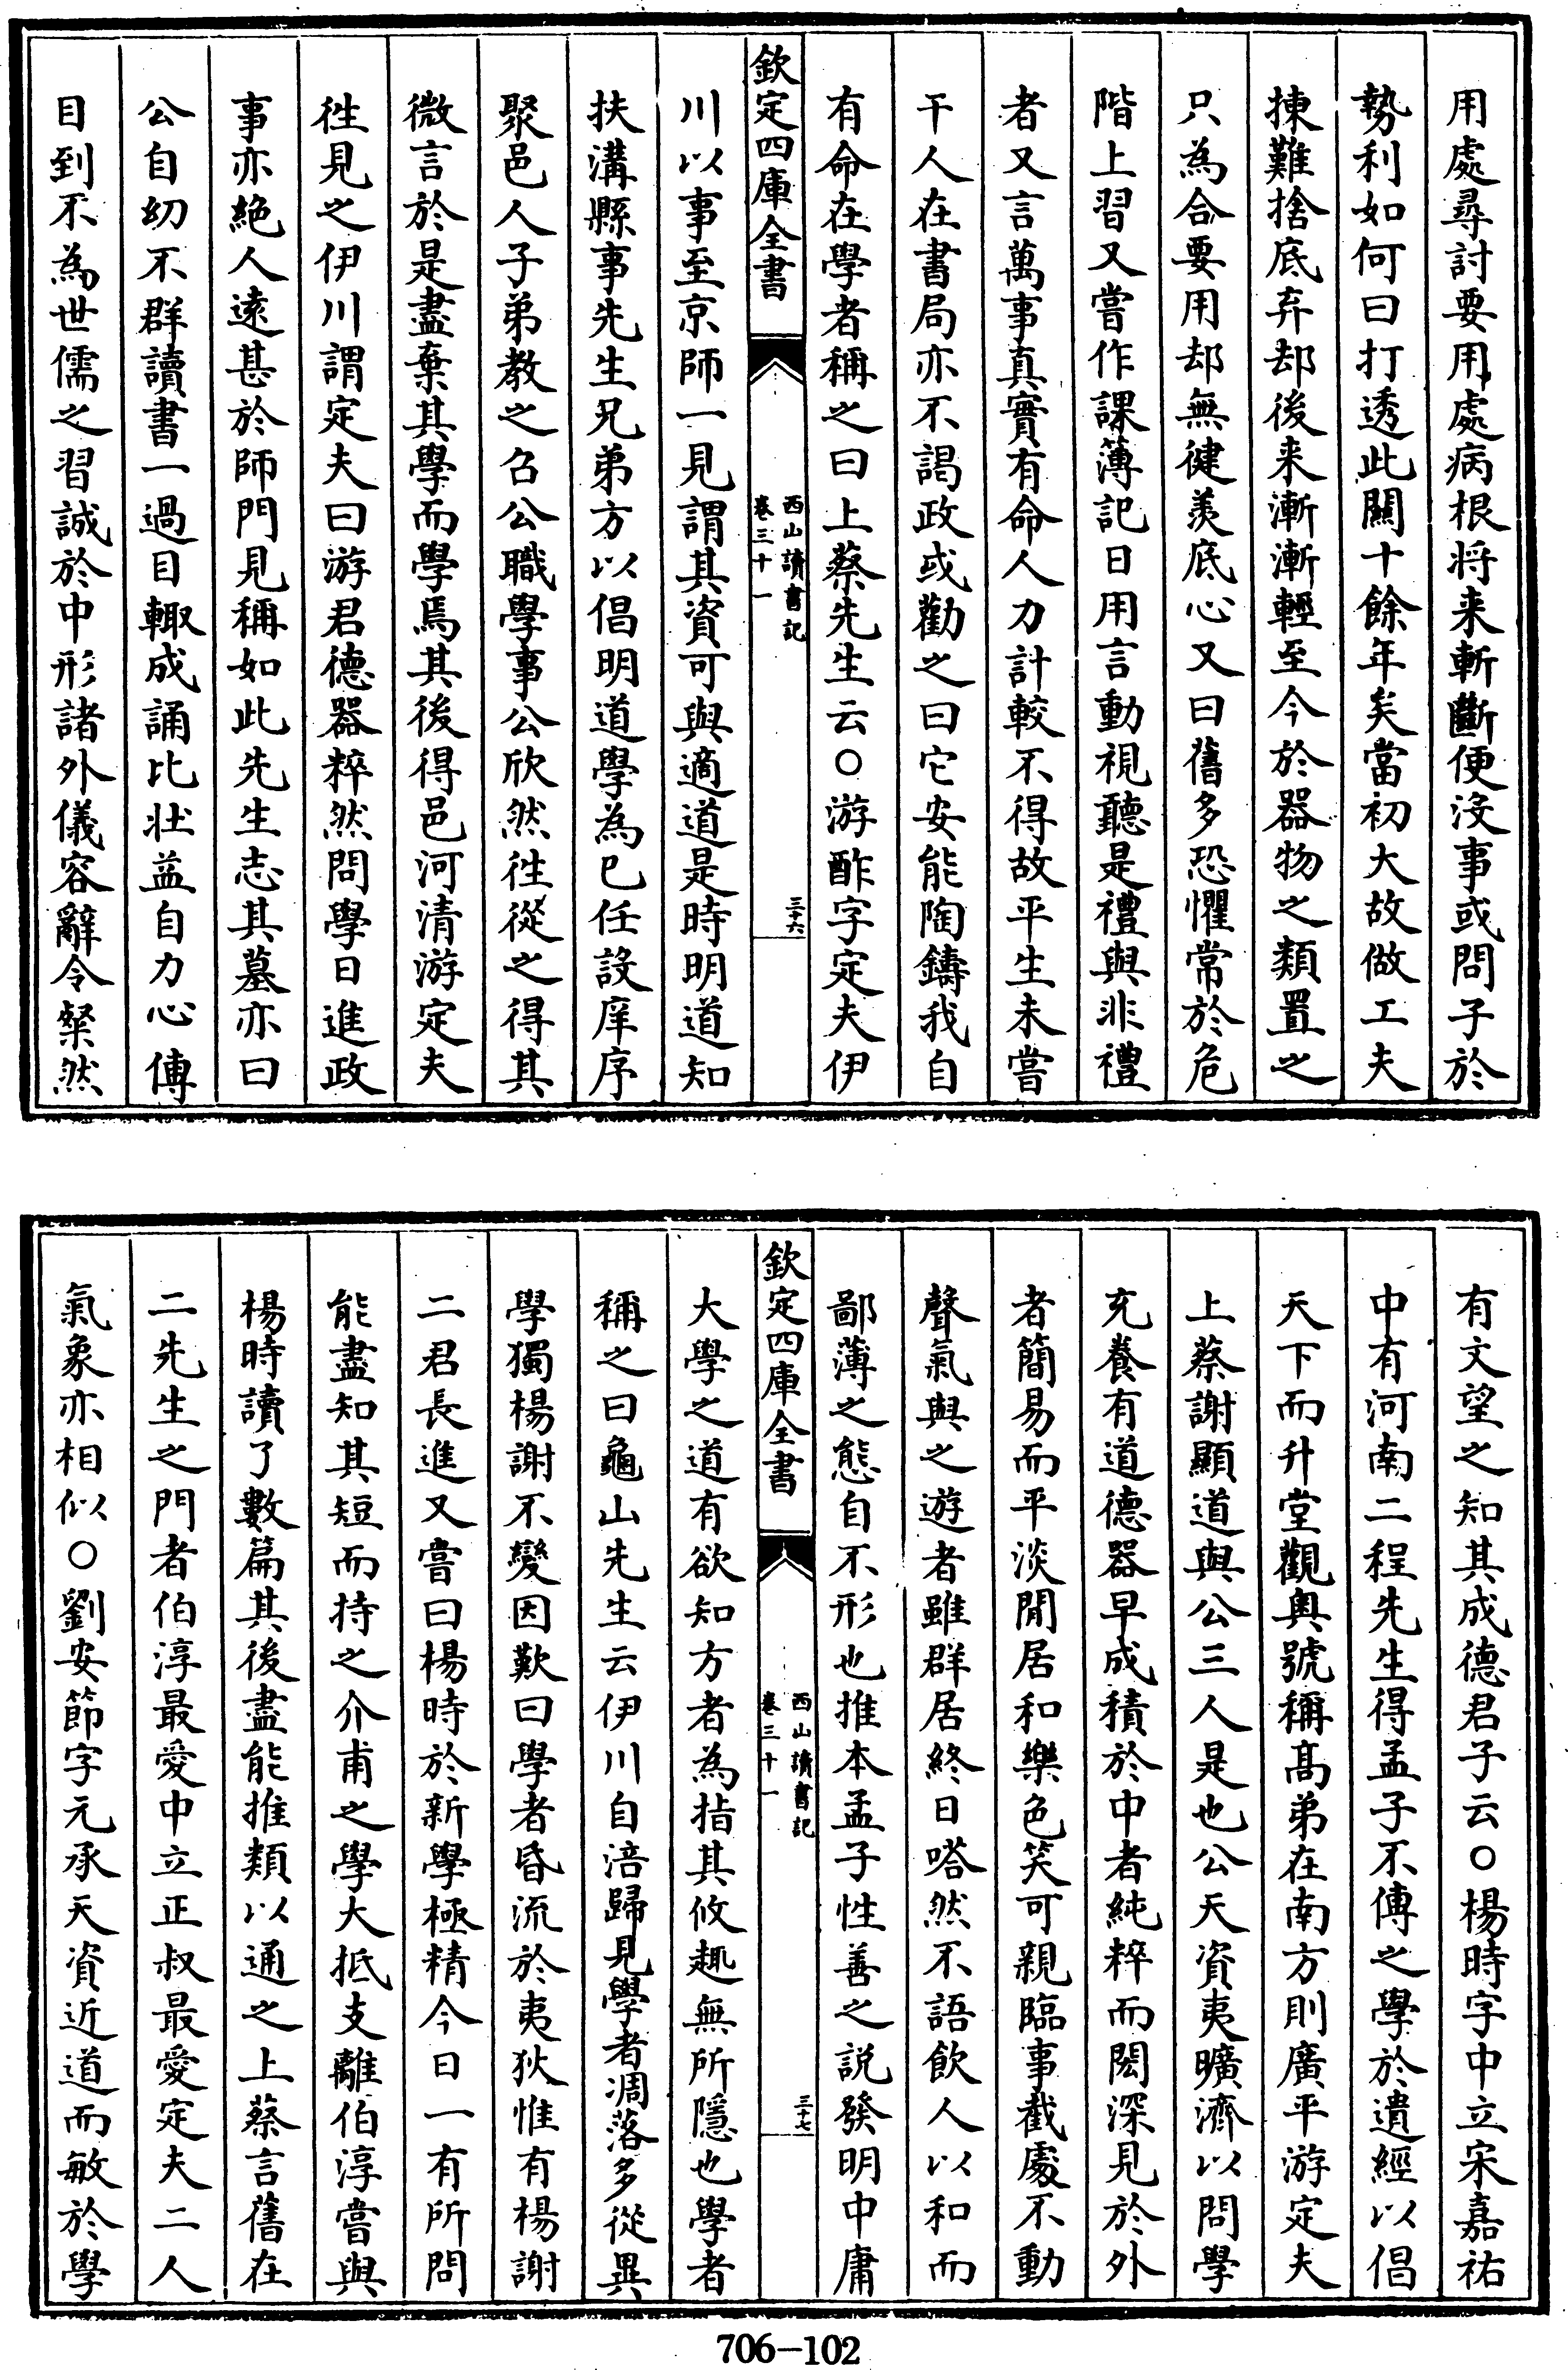 用處尋討要用處病根将来斬斷便沒事或問子於
勢利如何曰打透此關十餘年矣當初大故做工夫
揀難捨底弃却後来漸漸輕至今於器物之類置之
只為合要用却無健羨底心又曰舊多恐懼常於危
階上習又嘗作課簿記日用言動視聽是禮與非禮
者又言萬事真實有命人力計較不得故平生未嘗
干人在書局亦不謁政或勸之曰它安能陶鑄我自
有命在學者稱之曰上蔡先生云○游酢字定夫伊
欽定四庫全書
西山讀書記
卷三十一
三十六
川以事至京師一見謂其資可與適道是時明道知
扶溝縣事先生兄弟方以倡明道學為己任設庠序
聚邑人子弟教之召公職學事公欣然徃從之得其
微言於是盡棄其學而學焉其後得邑河清游定夫
徃見之伊川謂定夫曰游君德器粹然問學日進政
事亦絶人逺甚於師門見稱如此先生志其墓亦曰
公自幼不群讀書一過目輙成誦比壮益自力心傳
目到不為世儒之習誠於中形諸外儀容辭令粲然
有文望之知其成德君子云○楊時字中立宋嘉祐
中有河南二程先生得孟子不傳之學於遺經以倡
天下而升堂觀奥號稱髙弟在南方則廣平游定夫
上蔡謝顯道與公三人是也公天資夷曠濟以問學
充養有道德器早成積於中者純粹而閎深見於外
者簡易而平淡閒居和樂色笑可親臨事裁處不動
聲氣與之遊者雖群居終日嗒然不語飲人以和而
鄙薄之態自不形也推本孟子性善之説發明中庸
欽定四庫全書
西山讀書記
卷三十一
三十七
大學之道有欲知方者為指其攸趣無所隱也學者
稱之曰龜山先生云伊川自涪歸見學者凋落多從異
學獨楊謝不變因歎曰學者昏流於夷狄惟有楊謝
二君長進又嘗曰楊時於新學極精今日一有所問
能盡知其短而持之介甫之學大抵支離伯淳嘗與
楊時讀了數篇其後盡能推類以通之上蔡言舊在
二先生之門者伯淳最愛中立正叔最愛定夫二人
氣象亦相似○劉安節字元承天資近道而敏於學
706-102